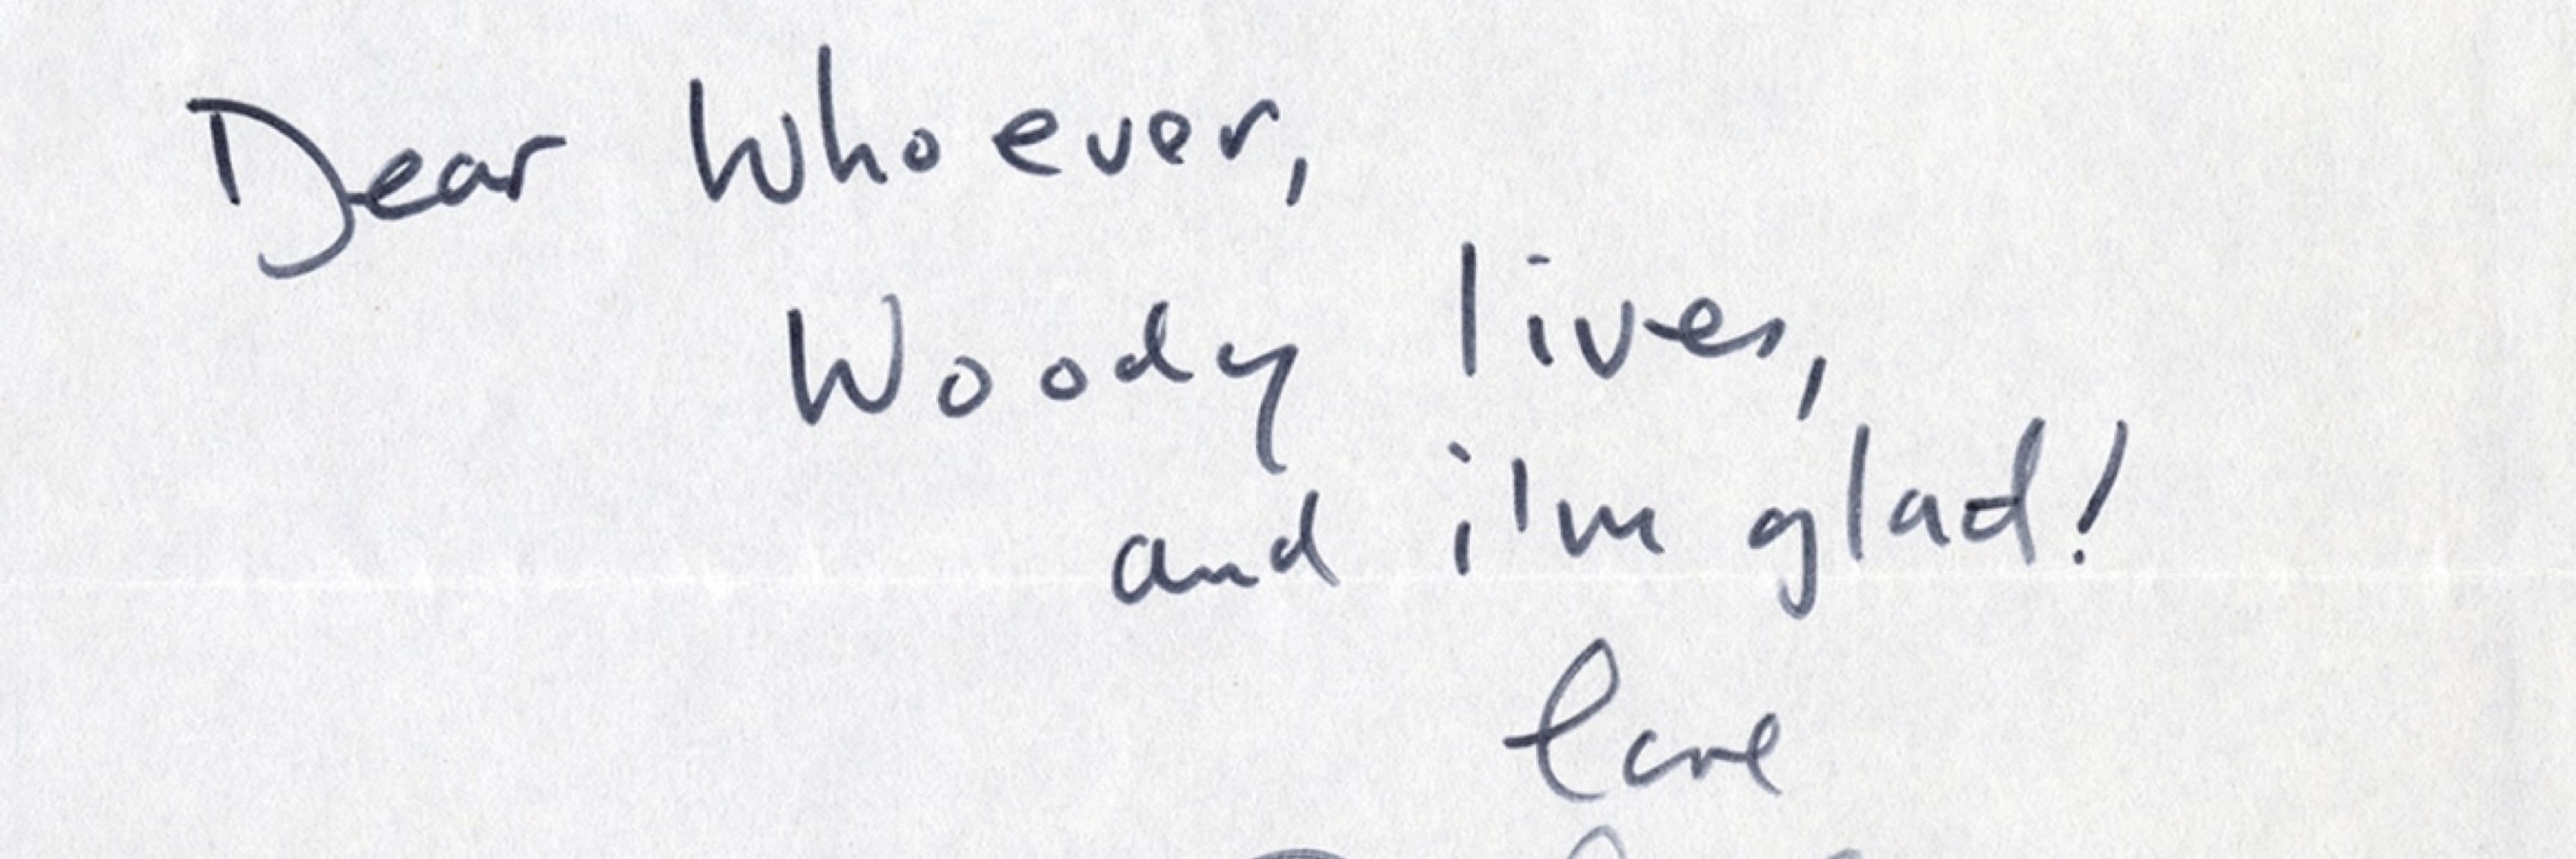 Dear Whoever,
Woody lives,
and i'm glad!
love